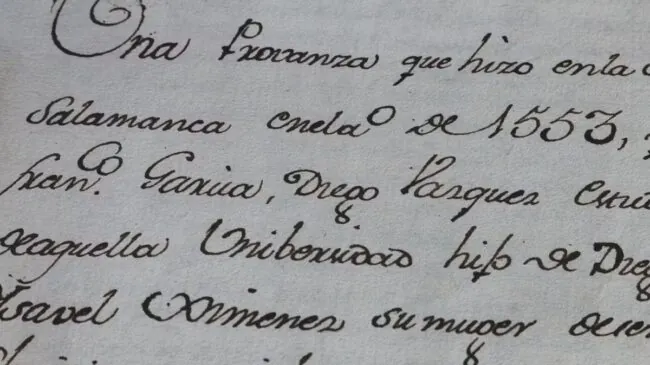 Una Provanza que hizo en la
Salamanca en el aº de 1553,
Franᶜº. Garcia, Diego Vazquez
de aquella Unibersidad hijo de Dieg
Ysavel Ximenez su muger